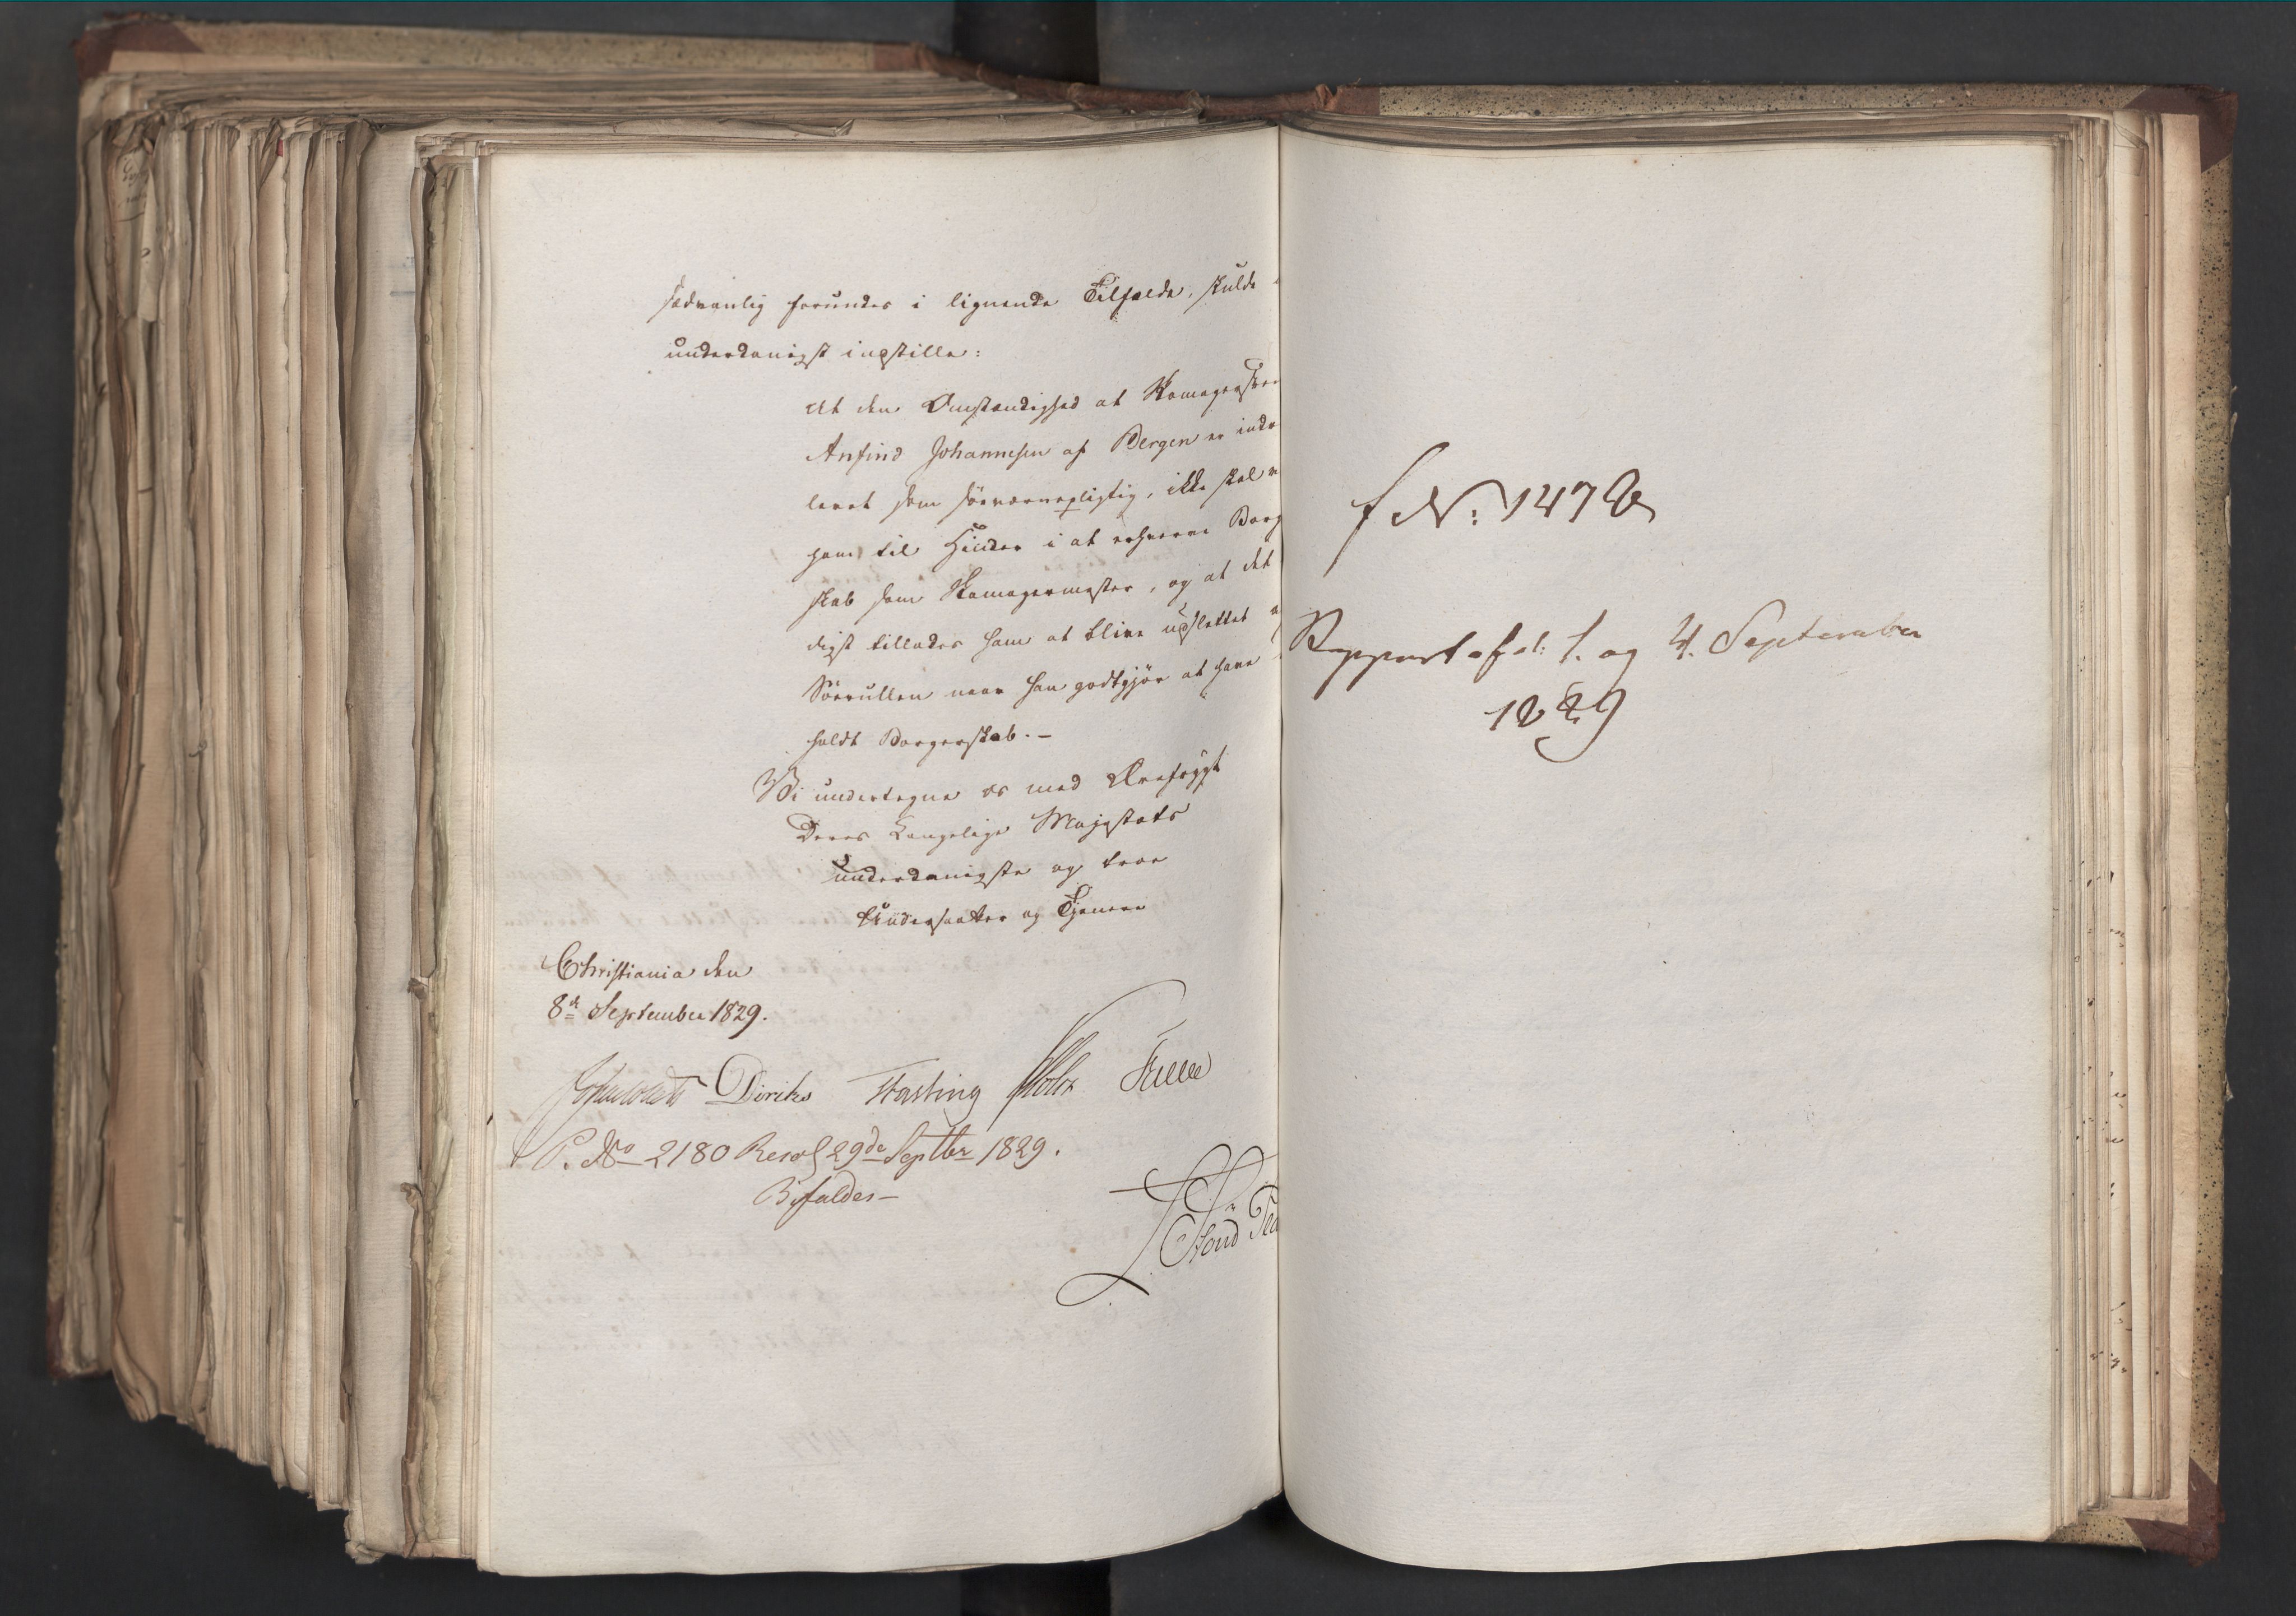 sædvanlig forundes i lignende Tilfælde, skulde
underdanigst indstille:
At den Omstændighed at Skomagersven
Anfind Johannesen af Bergen er indrul
leret som søeværnepligtig, ikke skal v
ham til Hinder i at erhverve Borg
skab som Skomagermester, og at det
digst tillades ham at blive udslettet a
Sørrullen naar han godtgjør at have
holdt Borgerskab. –
Vi undertegne os med Ærefrygt
Deres Kongelige Majestæts
underdanigste og troe
Undersaatter og Tjenere
Christiania den
8de September 1829.
Diriks Fasting Holst
P. No 2180 Resol 29de Septbr 1829.
Bifaldes –
f N: 1478
Rapport af d: 1. og 4. September
1829